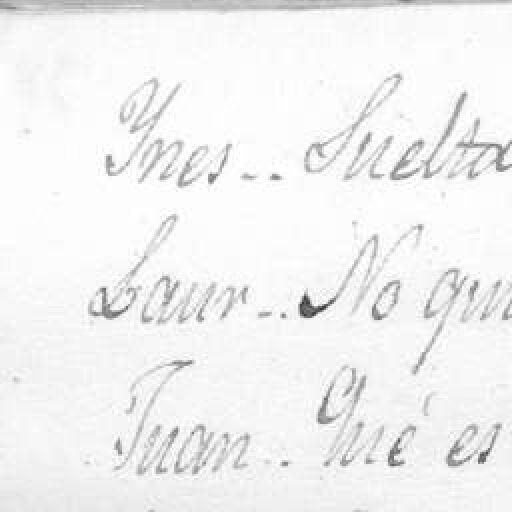 Ynes -- Suelta
Laur -- No qui
Juan -- Qué es